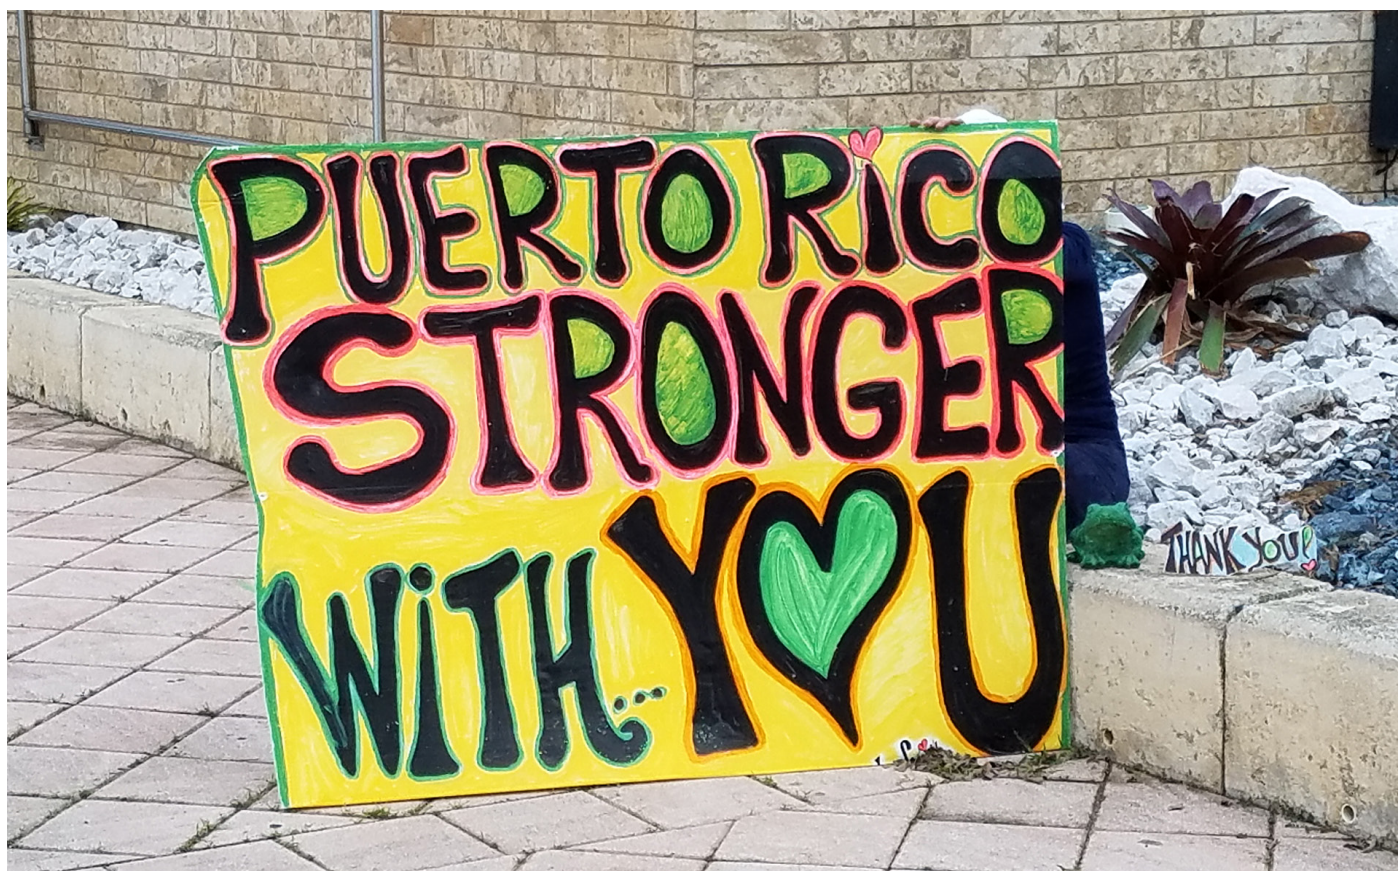 PUERTO RiCO
STRONGER
WiTH... YOU
THANK YOU!